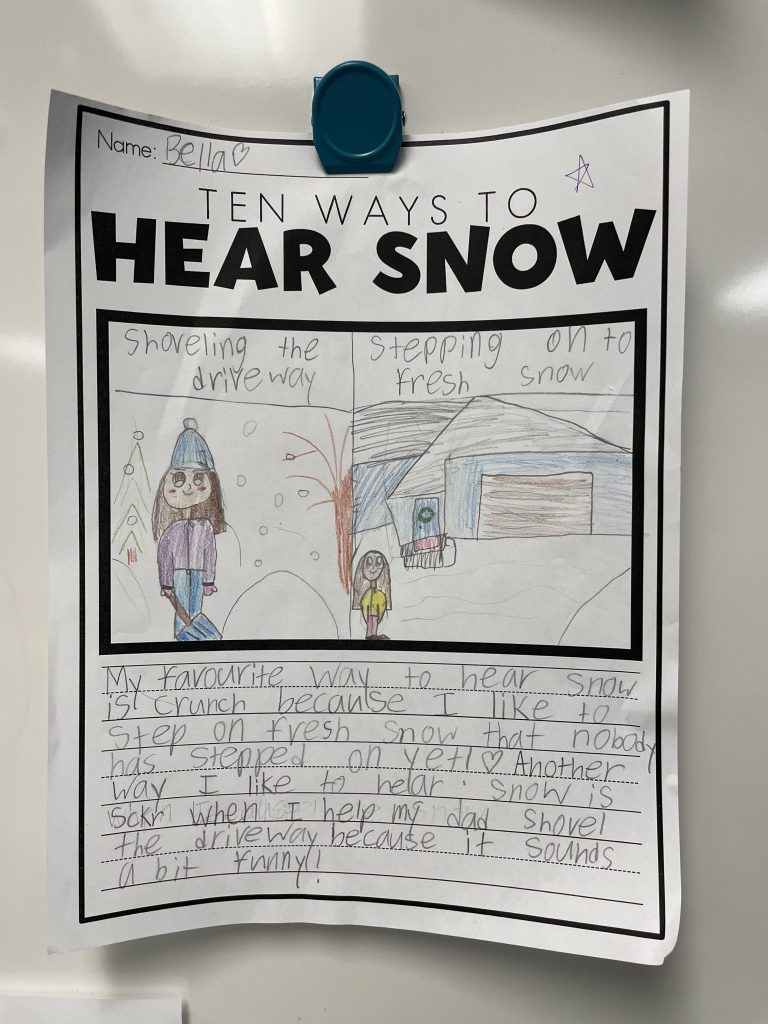 Name: Bella♡
TEN WAYS TO
HEAR SNOW
Shoveling the
driveway
Stepping on to
fresh snow
My favourite way to hear snow
is crunch because I like to
step on fresh snow that nobody
has stepped on yet! ♡ Another
way I like to hear snow is
when I help my dad shovel
the driveway because it sounds
a bit funny!